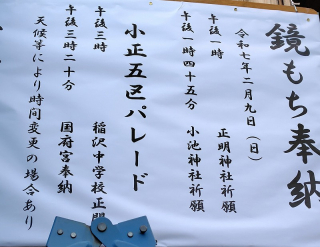 鏡もち奉納
令和七年二月九日（日）
午後一時 正明神社祈願
午後一時四十五分 小池神社祈願
小正五区パレード
午後三時 稲沢中学校正明
午後三時二十分 国府宮奉納
天候等により時間変更の場合あり